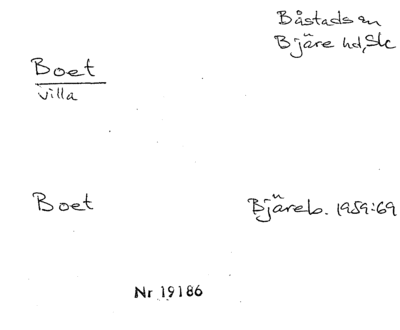 Båstads sn
Bjäre hd, Sk
Boet
villa
Boet
Bjäreb. 1959:69
Nr 19186